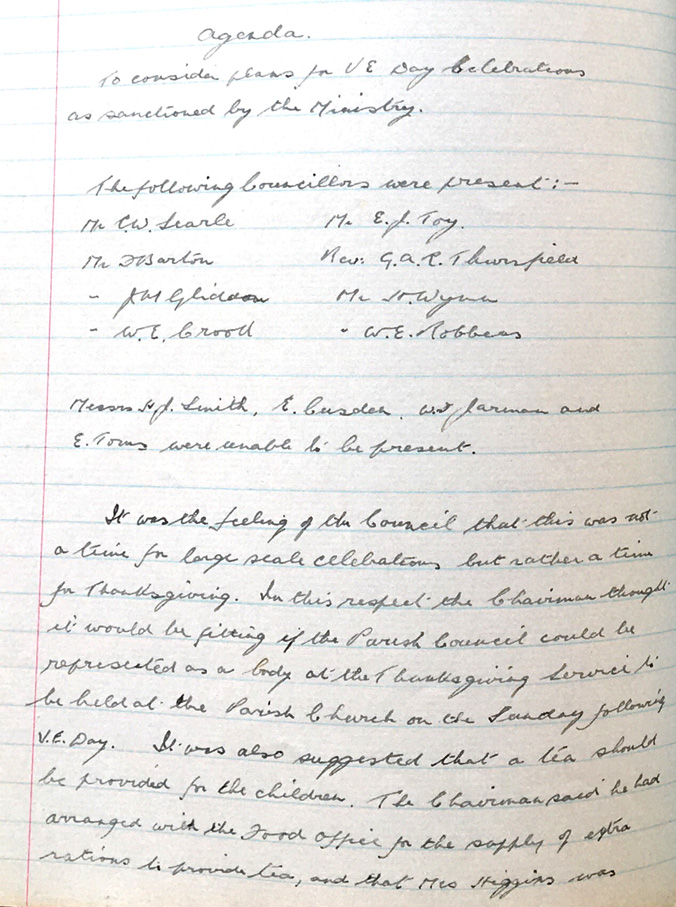 Agenda.
To consider plans for VE Day Celebrations
as sanctioned by the Ministry.
The following Councillors were present :-
Mr C.W. Searle Mr E.J. Toy.
Mr F Barton Rev: G.A.C. Thursfield
- JH Gliddon Mr H. Wynn
- W.E. Crook - W.E. Robbens
Messrs H.J. Smith, E. Cusden, W.T Jarman and
E. Toms were unable to be present.
It was the feeling of the Council that this was not
a time for large scale celebrations but rather a time
for Thanksgiving. In this respect the Chairman thought
it would be fitting if the Parish Council could be
represented as a body at the Thanksgiving Service to
be held at the Parish Church on the Sunday following
V.E. Day. It was also suggested that a tea should
be provided for the children. The Chairman said he had
arranged with the Food Office for the supply of extra
rations to provide tea, and that Mrs Higgins was